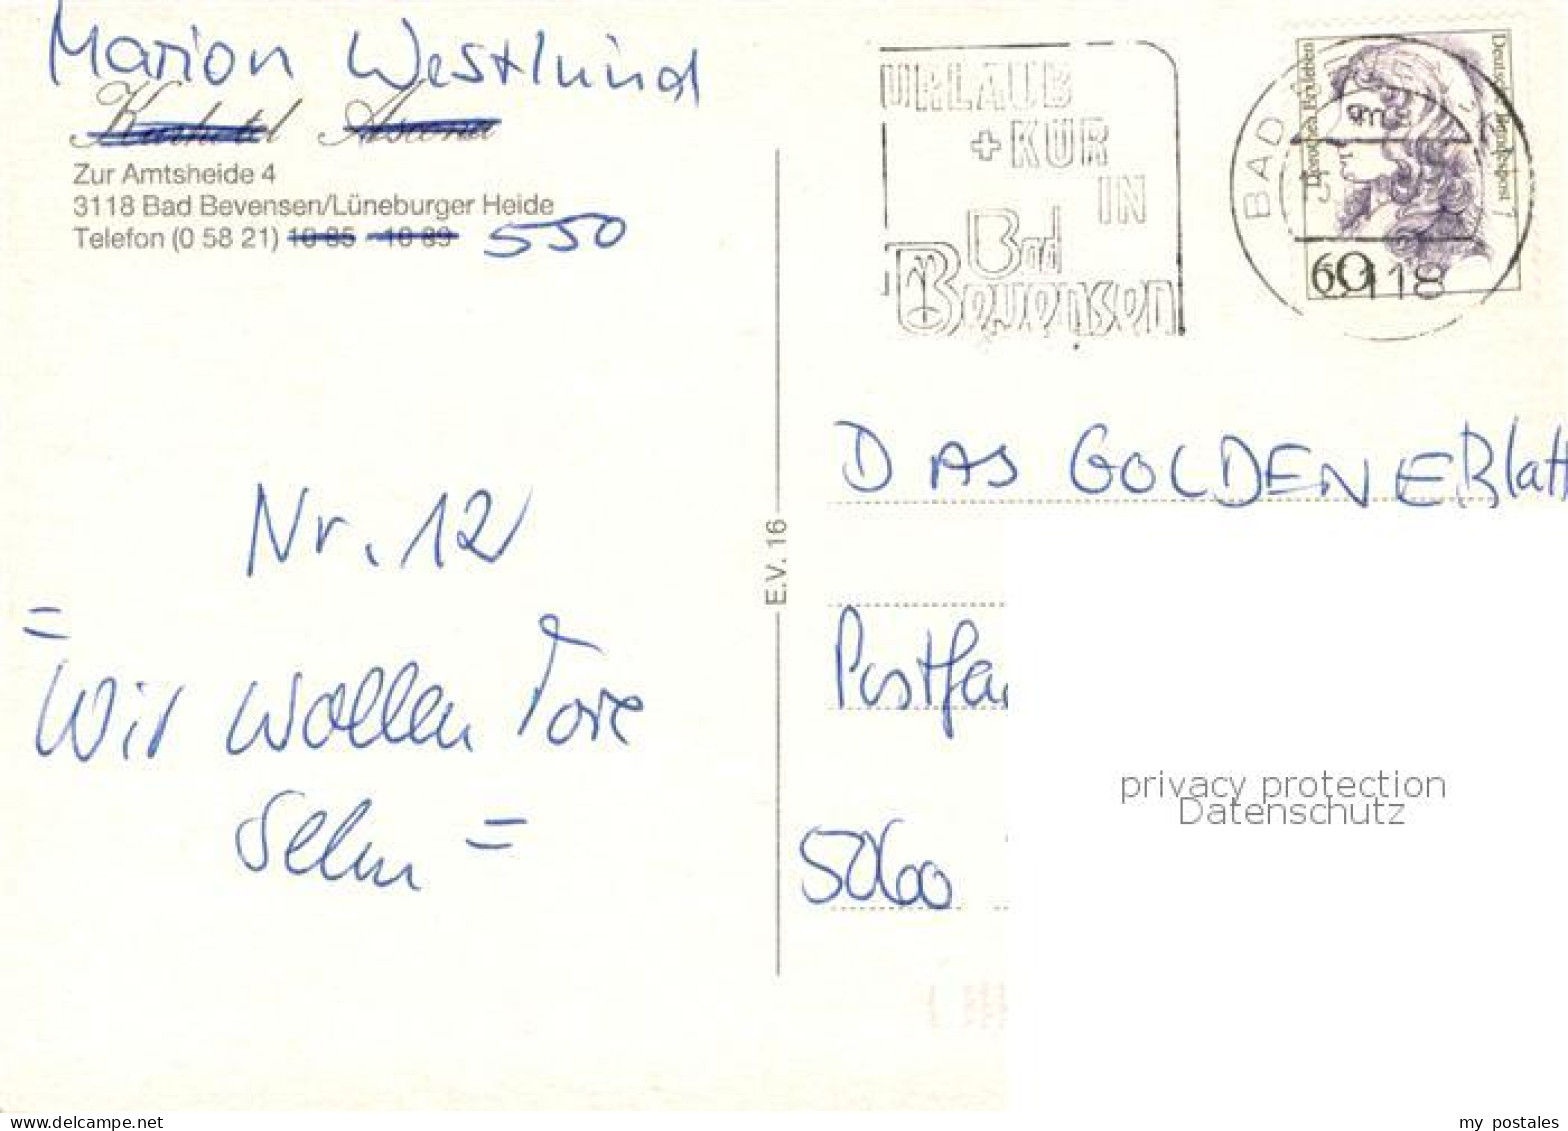 Marion Westlund
Kurhotel Ascona
Zur Amtsheide 4
3118 Bad Bevensen/Lüneburger Heide
Telefon (0 58 21) 10 85 - 10 89 550
Nr. 12
=
Wir wollen Tore
sehn =
E.V. 16
URLAUB
+ KUR
IN
Bad
Bevensen
BAD
3118
Dorothea Erxleben
Deutsche Bundespost
60
DAS GOLDENE Blatt
Postfa
5060
privacy protection
Datenschutz
www.delcampe.net
my_postales